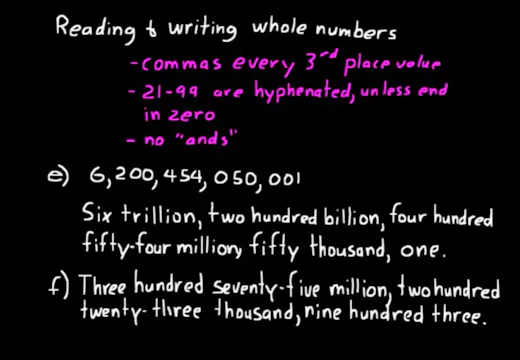 Reading & writing whole numbers
- commas every 3rd place value
- 21-99 are hyphenated, unless end
in zero
- no "ands"
e) 6,200,454,050,001
Six trillion, two hundred billion, four hundred
fifty-four million, fifty thousand, one.
f) Three hundred seventy-five million, two hundred
twenty-three thousand, nine hundred three.